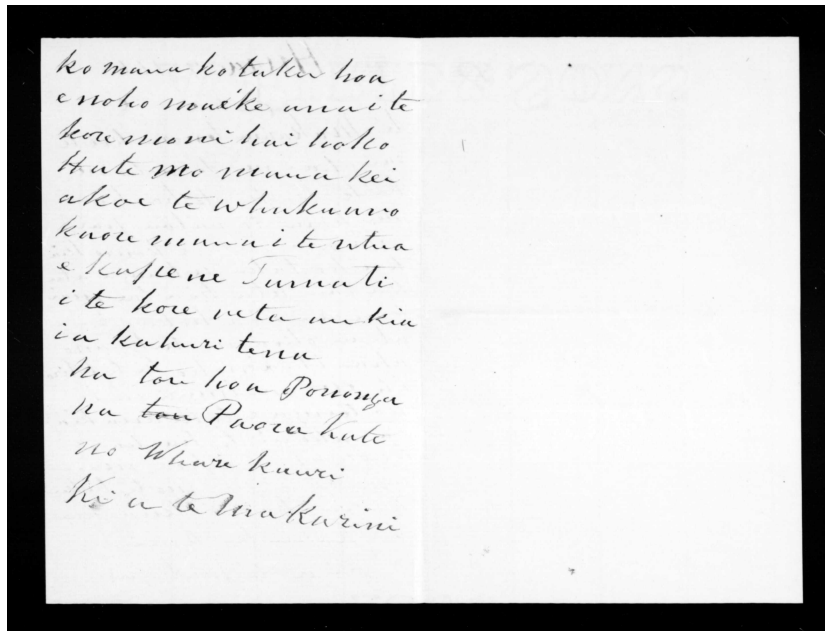 ko maua ko taku hoa
e noho maeke ana i te
kore moni hai hoko
Hate mo maua kei
akoe te whakaaro
kaore maua i te utua
e kapene Tamati
i te kore reta au kia
ia kahuri tena
na tou hoa Pononga
na tou Paora Kate
no Whare kauri
Ki a te Makarini